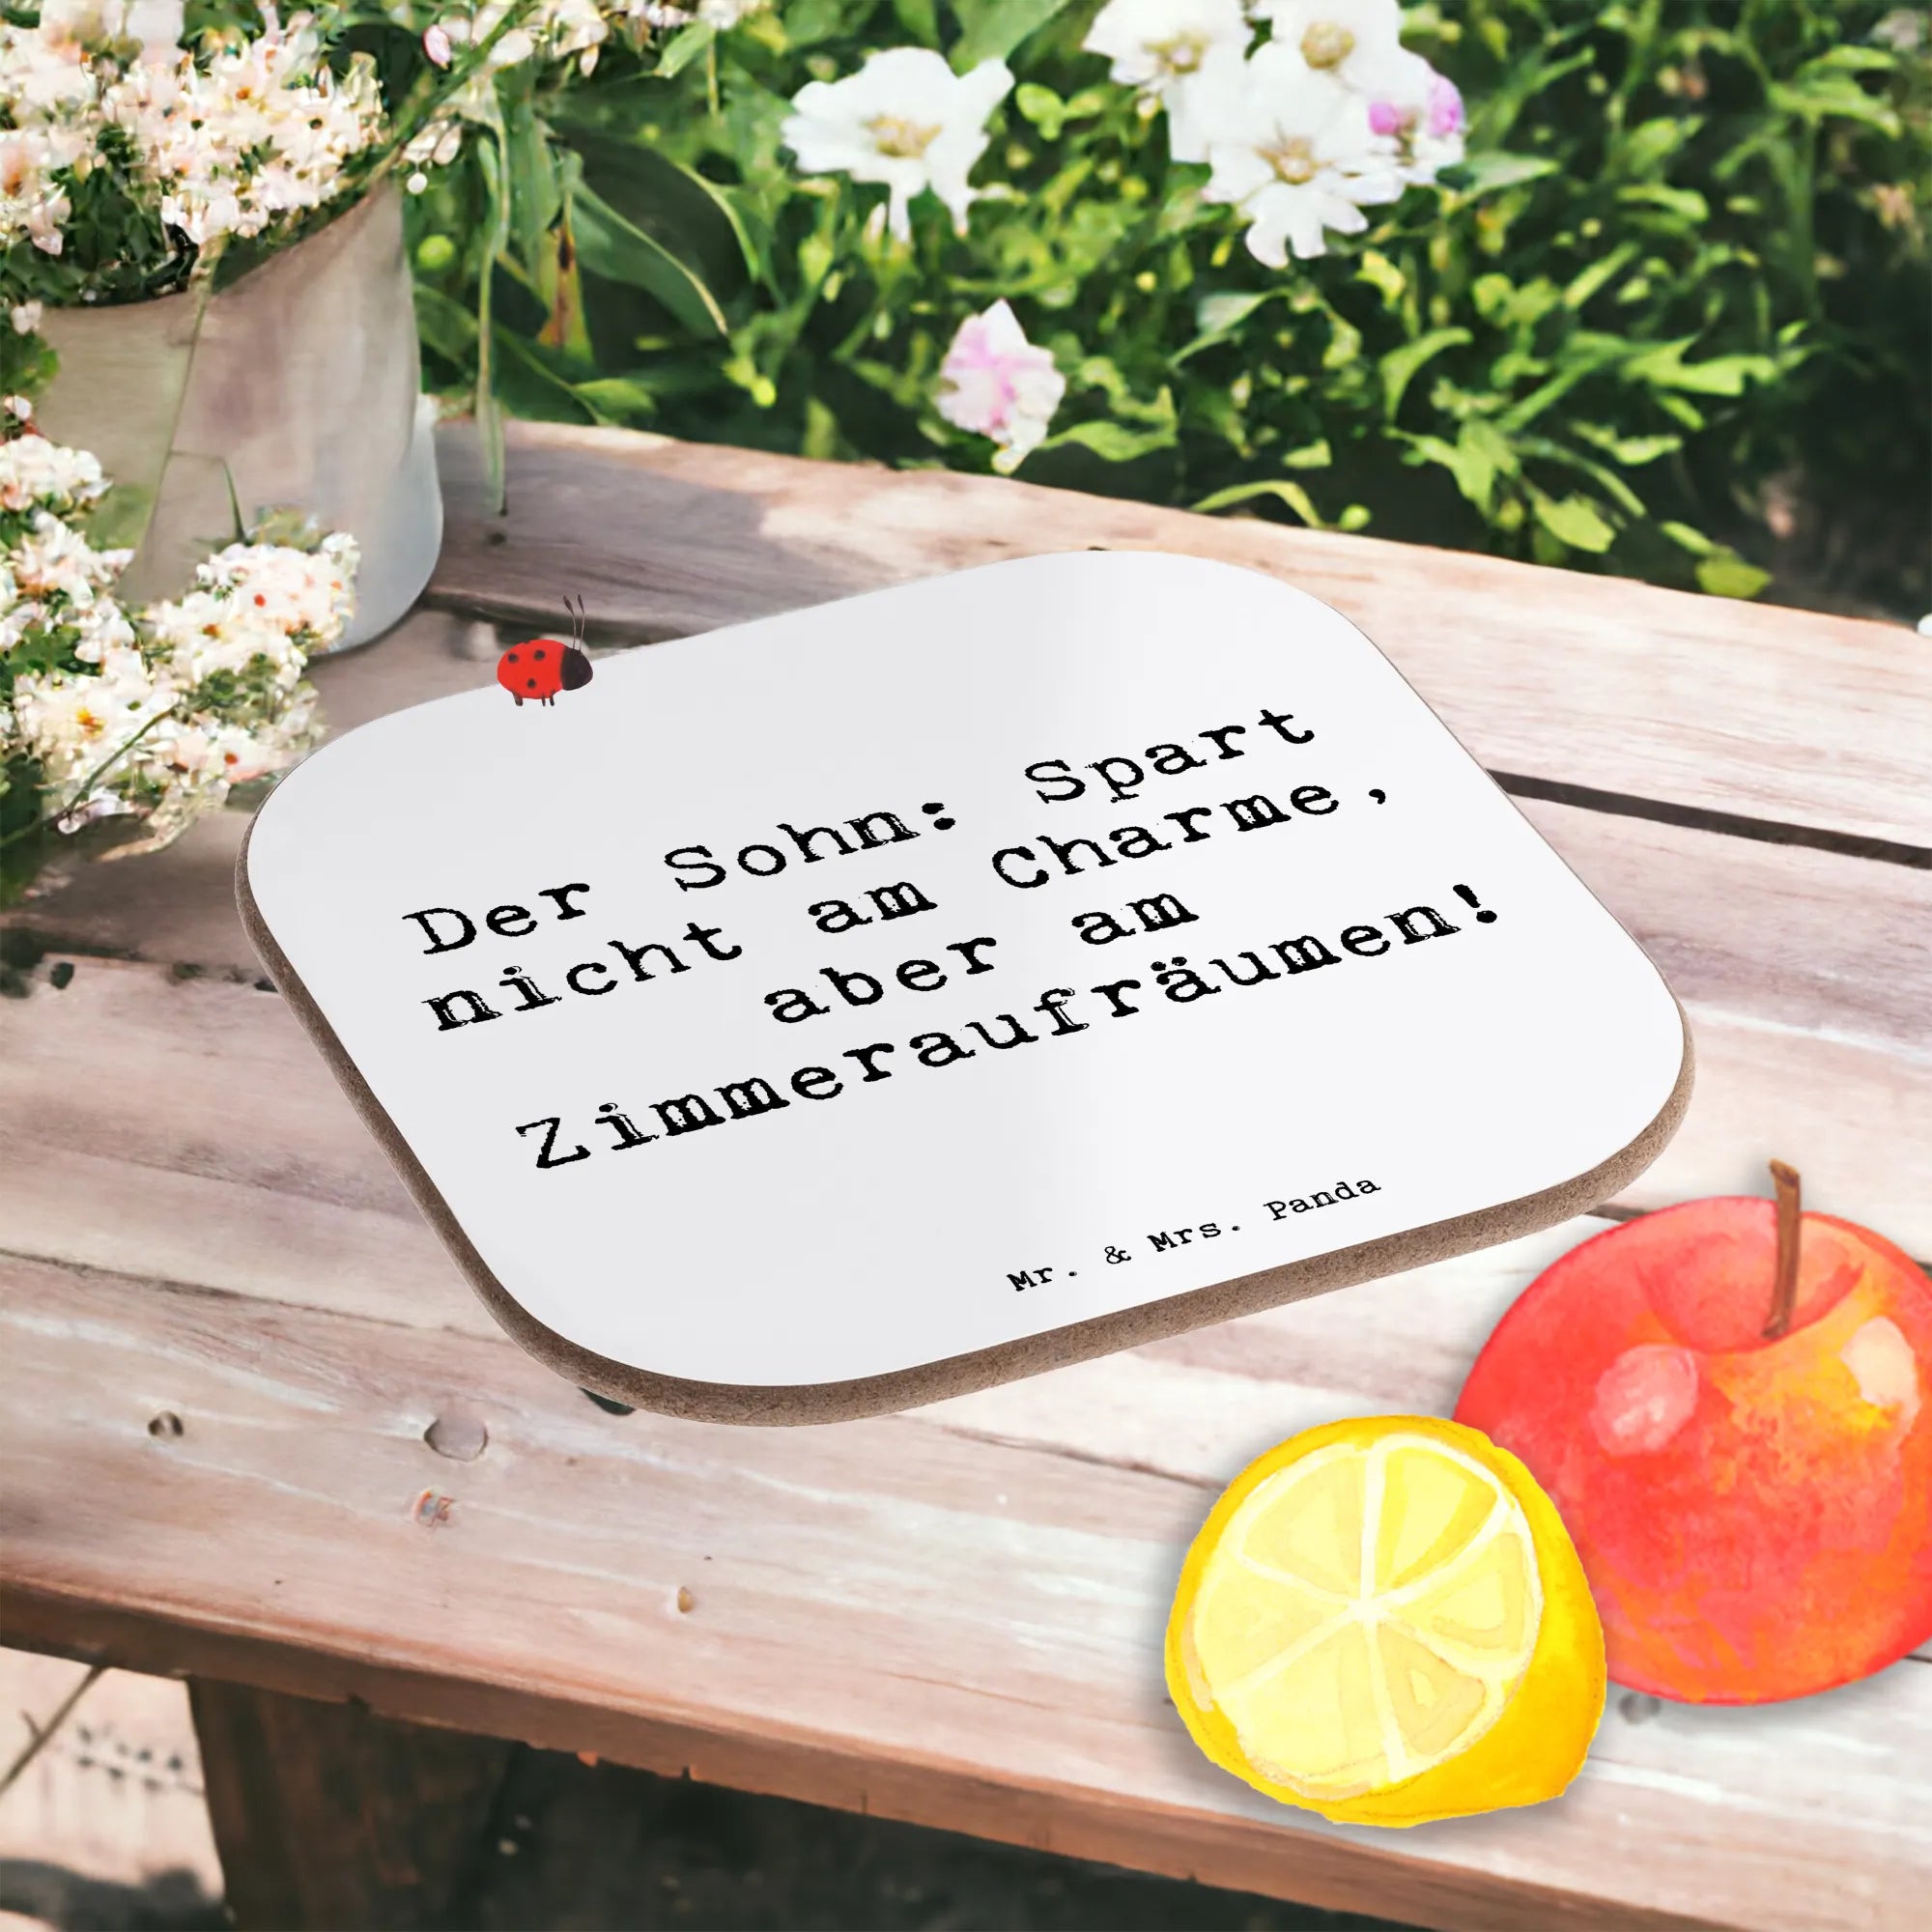 Der Sohn: Spart
nicht am Charme,
aber am
Zimmeraufräumen!
Mr. & Mrs. Panda